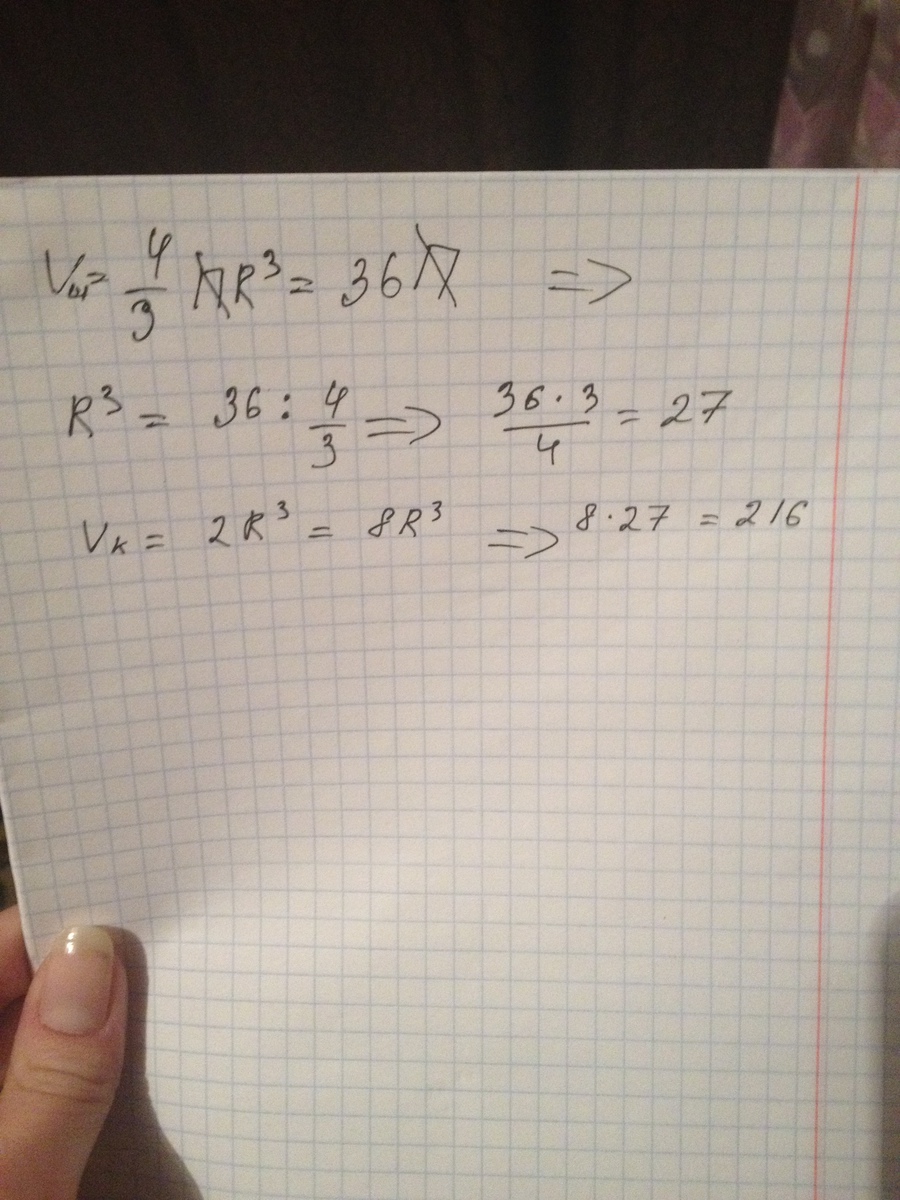 Vш = 4/3 πR³ = 36π =>
R³ = 36 : 4/3 => 36·3/4 = 27
Vк = 2R³ = 8R³ => 8·27 = 216